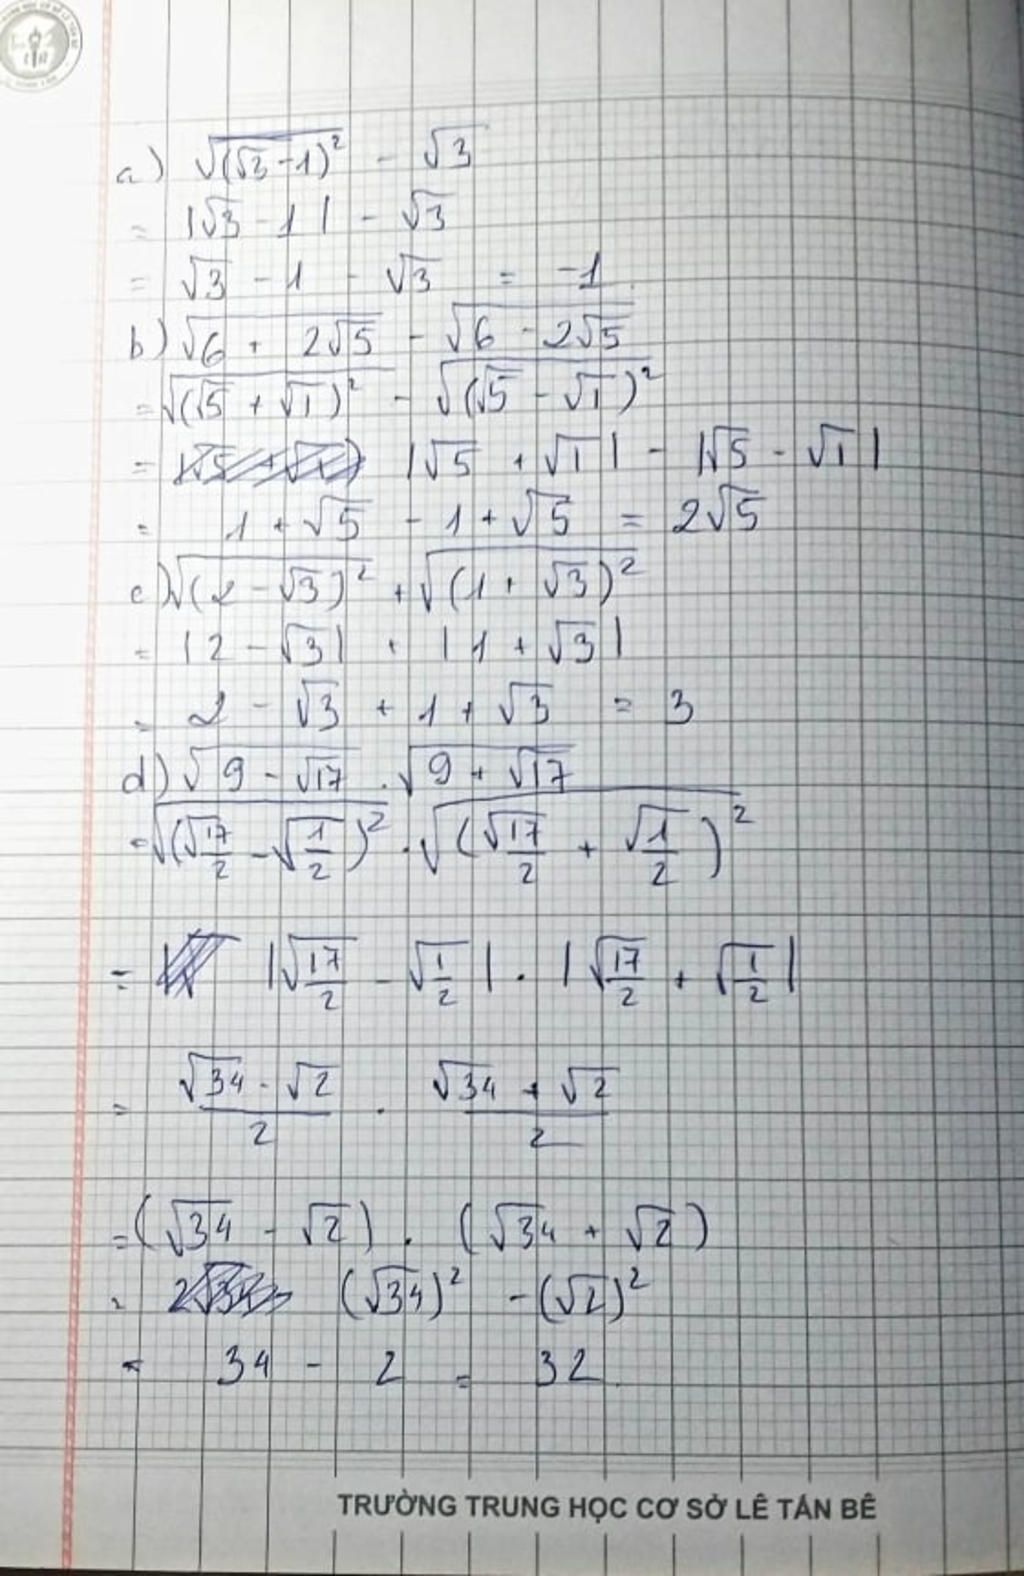 a) √(√3 - 1)² - √3
= |√3 - 1| - √3
= √3 - 1 - √3 = -1
b) √6 + 2√5 - √6 - 2√5
= √(√5 + √1)² - √(√5 - √1)²
= |√5 + √1| - |√5 - √1|
= 1 + √5 - 1 + √5 = 2√5
c) √(2 - √3)² + √(1 + √3)²
= |2 - √3| + |1 + √3|
= 2 - √3 + 1 + √3 = 3
d) √9 - √17 . √9 + √17
= √(√17/2 - √1/2)² . √(√17/2 + √1/2)²
= |√17/2 - √1/2| . |√17/2 + √1/2|
= √34 - √2/2 . √34 + √2/2
= (√34 - √2) . (√34 + √2)
= (√34)² - (√2)²
= 34 - 2 = 32
TRƯỜNG TRUNG HỌC CƠ SỞ LÊ TẤN BÊ